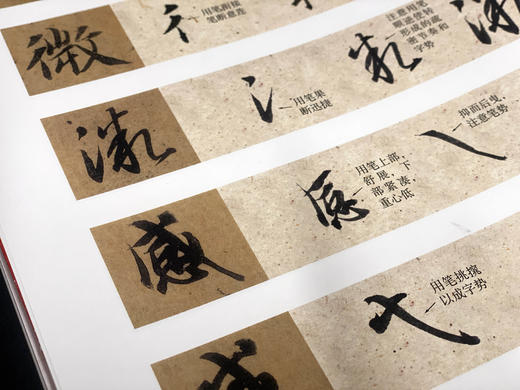 微
用笔衔接
笔断意连
注意用笔
顺逆使转
形成的疏
密节奏和
字势
用笔果
断迅捷
感
用笔上部,
舒展,下
部紧凑,
重心低
抑而后曳,
注意笔势
用笔挑捥
以成字势